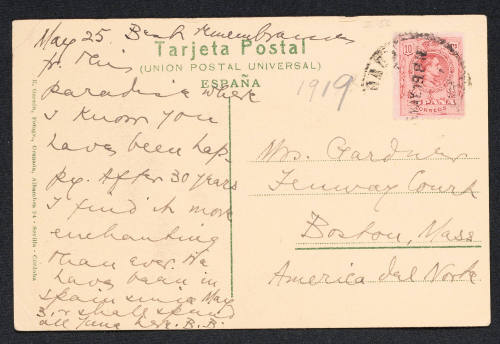 May 25. Best remembrances
fr. this
paradise where
I know you
have been hap-
py. After 30 years
I find it more
enchanting
than ever. We
have been in
Spain since May
3, & shall spend
all June here. B.B.
Tarjeta Postal
(UNION POSTAL UNIVERSAL)
ESPAÑA
1919
10
ESPAÑA
CORREOS
Mrs. Gardner
Fenway Court
Boston, Mass
America del Norte
Granada, Alhambra 24 - Sevilla - Córdoba